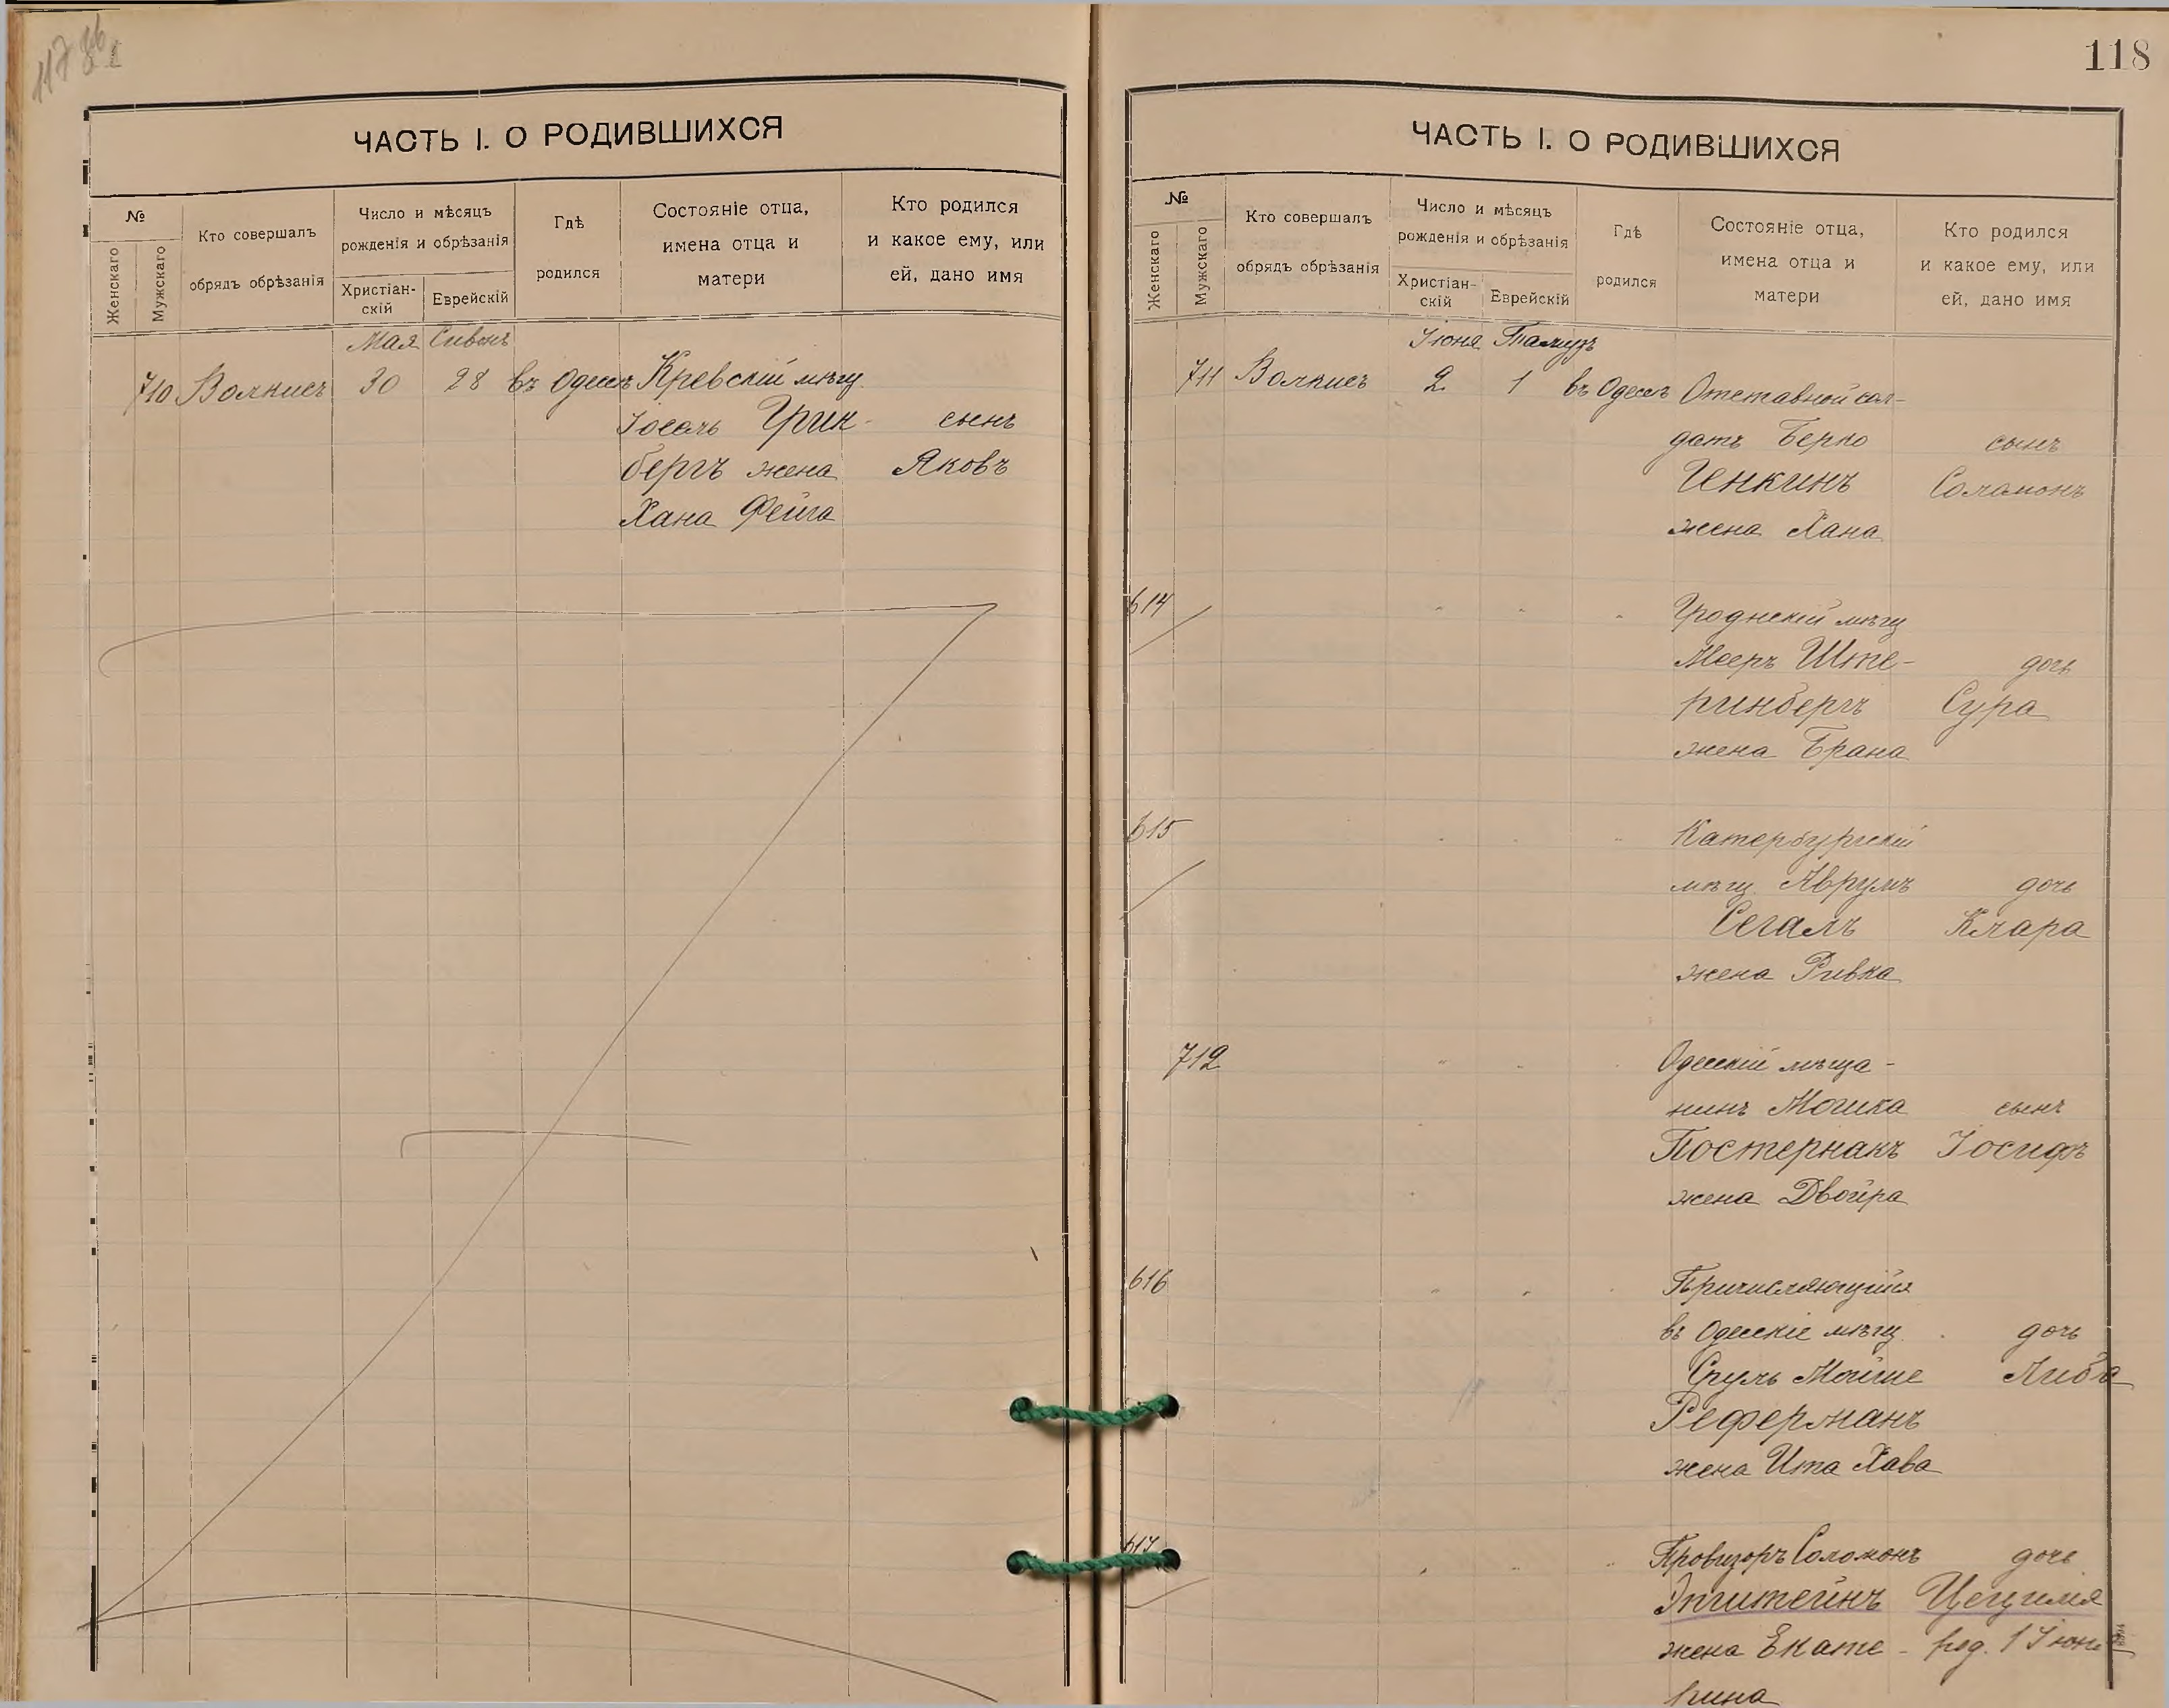 117 об.
ЧАСТЬ I. О РОДИВШИХСЯ
№
Женскаго
Мужскаго
Кто совершалъ
обрядъ обрѣзанія
Число и мѣсяцъ
рожденія и обрѣзанія
Христіан-
скій
Еврейскій
Гдѣ
родился
Состояніе отца,
имена отца и
матери
Кто родился
и какое ему, или
ей, дано имя
Мая Сивонъ
710 Волкисъ 30 28 въ Одессѣ Кревскій мѣщ.
Іосель Грин- сынъ
бергъ жена Яковъ
Хана Фейга
118
ЧАСТЬ I. О РОДИВШИХСЯ
№
Женскаго
Мужскаго
Кто совершалъ
обрядъ обрѣзанія
Число и мѣсяцъ
рожденія и обрѣзанія
Христіан-
скій
Еврейскій
Гдѣ
родился
Состояніе отца,
имена отца и
матери
Кто родился
и какое ему, или
ей, дано имя
Іюня Тамузъ
711 Волкисъ 2 1 въ Одессѣ Отставной сол-
датъ Берко сынъ
Генкинъ Соломонъ
жена Хана
614 " " " Гродненскій мѣщ
Мееръ Ште- дочь
ринбергъ Сура
жена Брана
615 " " " Катербургскій
мѣщ. Аврумъ дочь
Сегалъ Клара
жена Ривка
712 " " Одесскій мѣща-
нинъ Мошка сынъ
Постернакъ Іосифъ
жена Двойра
616 " " " Причисляющійся
въ Одесскіе мѣщ. дочь
Сруль Мойше Либа
Реферманъ
жена Ита Хава
617 " " " Провизоръ Соломонъ дочь
Эпштейнъ Цецилія
жена Екате- род. 1 Іюня
рина